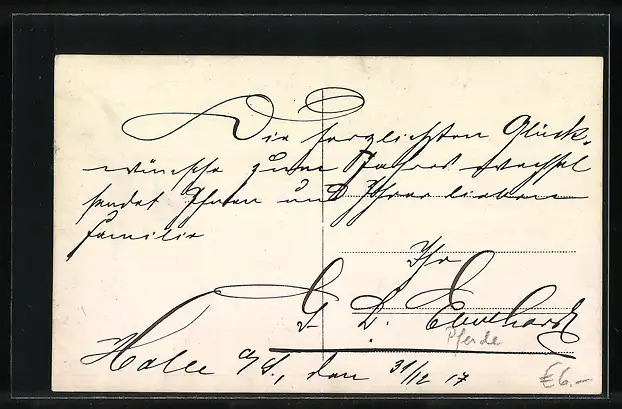 Die herzlichsten Glück-
wünsche zum Jahreswechsel
sendet Ihnen und Ihrer lieben
Familie
Ihr
G. D. Eberhardt
Pferde
Halle a/S., den 31/12 17
€6.-